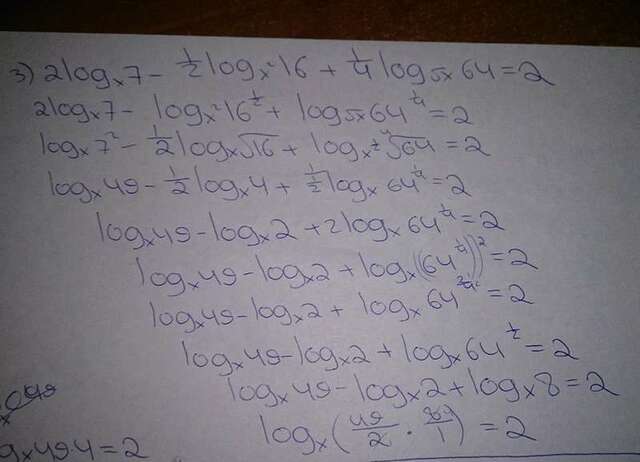 3) 2logₓ7 - 1/2 logₓ²16 + 1/4 log√x 64 = 2
2logₓ7 - logₓ²16^1/2 + log√x 64^1/4 = 2
logₓ7² - 1/2 logₓ√16 + logₓ^1/2 ⁴√64 = 2
logₓ49 - 1/2 logₓ4 + 1/(1/2) logₓ 64^1/4 = 2
logₓ49 - logₓ2 + 2logₓ 64^1/4 = 2
logₓ49 - logₓ2 + logₓ((64^1/4))² = 2
logₓ49 - logₓ2 + logₓ 64^2·1/4 = 2
logₓ49 - logₓ2 + logₓ64^1/2 = 2
logₓ49 - logₓ2 + logₓ8 = 2
logₓ(49/2 · 84/1) = 2
gₓ49·4 = 2